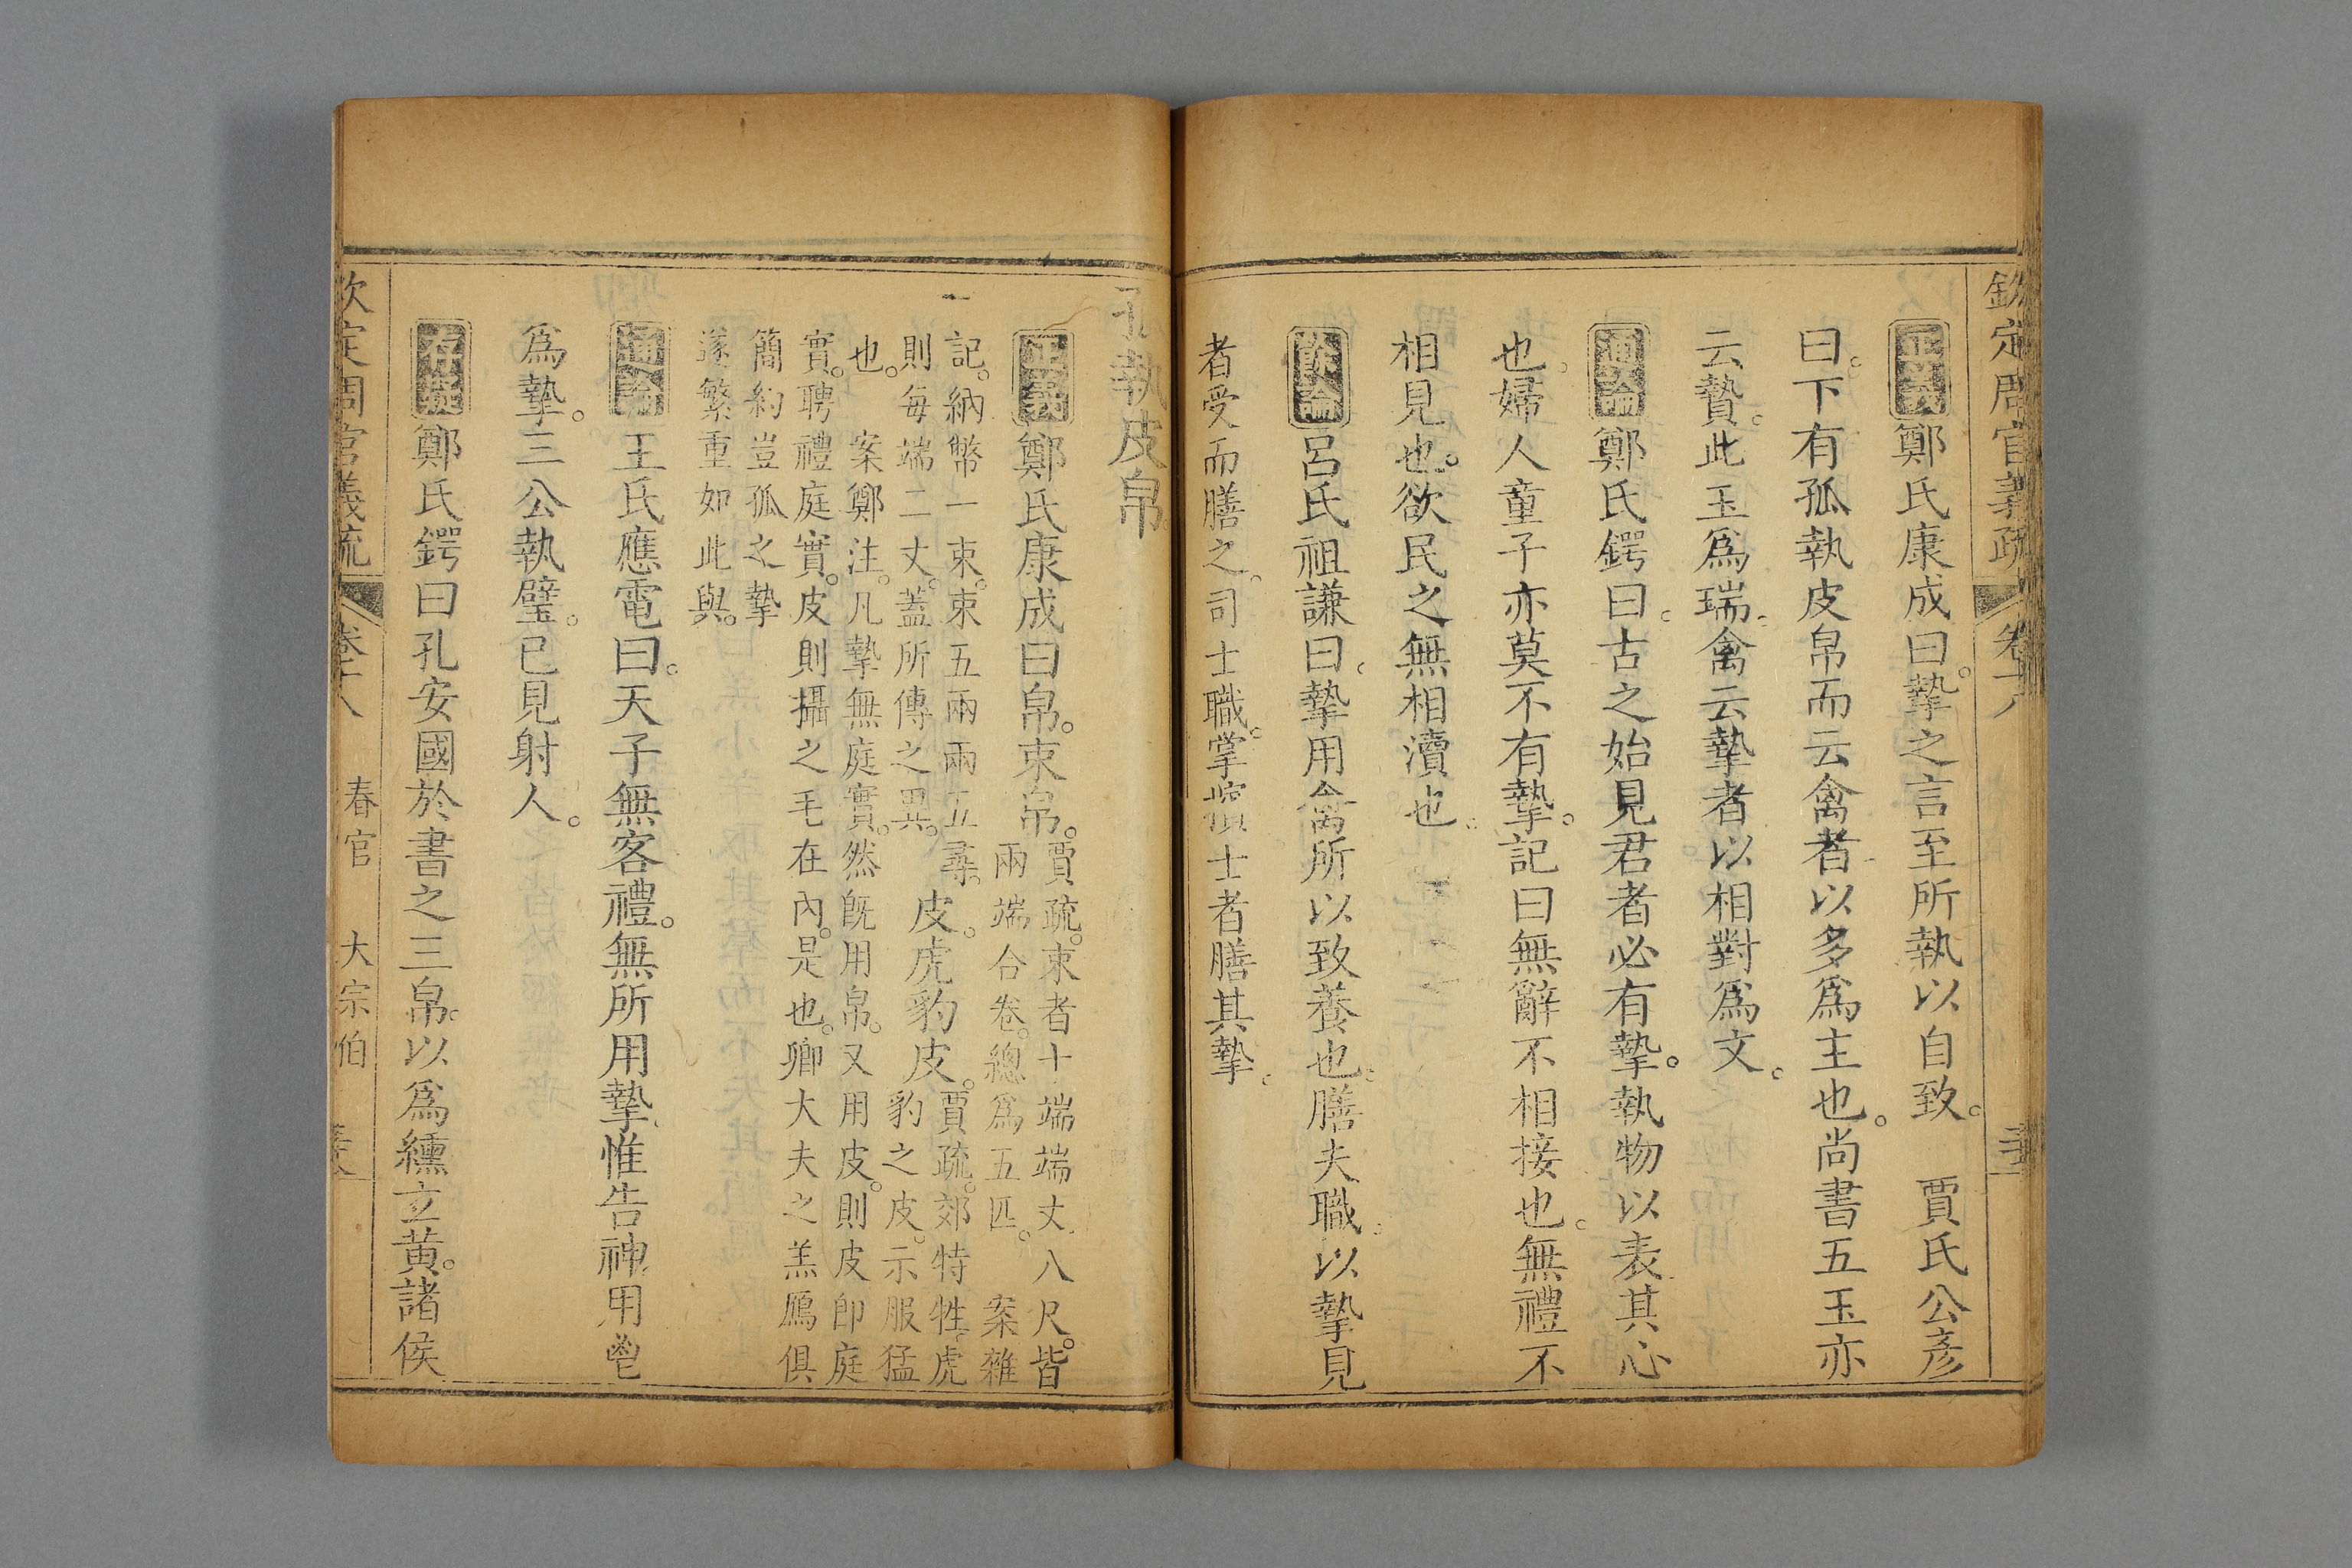 欽定周官義疏 卷十八
正義鄭氏康成曰。摯之言至所執以自致。 賈氏公彥
曰。下有孤執皮帛而云禽者以多爲主也。尚書五玉亦
云贄。此玉爲瑞。禽云摯者以相對爲文。
通論鄭氏鍔曰。古之始見君者必有摯。執物以表其心
也。婦人童子亦莫不有摯。記曰無辭不相接也。無禮不
相見也。欲民之無相瀆也。
餘論呂氏祖謙曰。摯用禽所以致養也。膳夫職。以摯見
者受而膳之。司士職。掌擯士者膳其摯。
孤執皮帛。
正義鄭氏康成曰帛。束帛。賈疏。束者十端端丈八尺。皆
兩端合卷。總爲五匹。 案雜
記。納幣一束。束五兩兩五尋。皮。虎豹皮。賈疏。郊特牲。虎
則每端二丈。蓋所傳之異。豹之皮。示服猛
也。 案鄭注。凡摯無庭實。然旣用帛。又用皮。則皮卽庭
實。聘禮庭實。皮則攝之毛在內。是也。卿大夫之羔鴈俱
簡約豈孤之摯
遂繁重如此與。
通論 王氏應電曰。天子無客禮。無所用摯惟告神用鬯
爲摯。三公執璧。已見射人。
存異鄭氏鍔曰孔安國於書之三帛。以爲纁玄黄。諸侯
欽定周官義疏 卷十八 春官 大宗伯